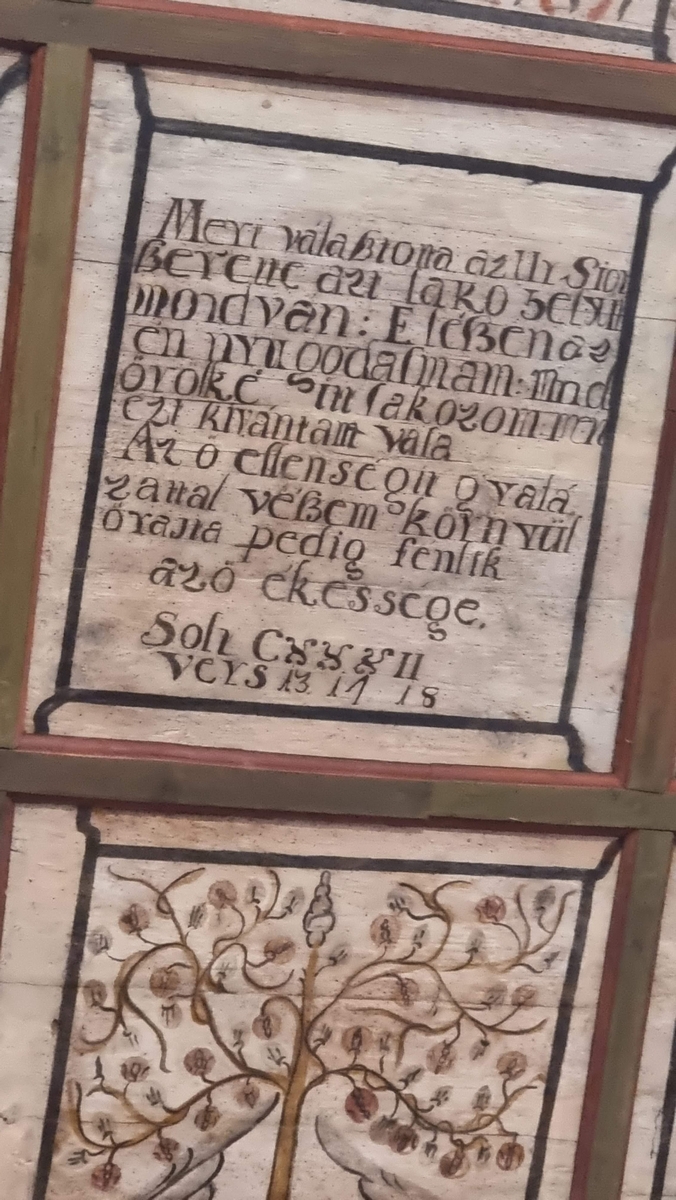 Mertválaßtotta az Ur Sion
ßerette azt lako
mondván: E léßen az
én nyu odalmam: mind
örökké lakozom
ezt kivántam vala
Az ö ellenségit gyalá
zattal véßem környül
örajta pedig fenlik
az ö ékessége.
Solt CXXXII
VERS 13. 14 18